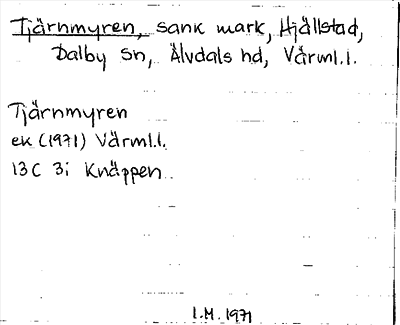 Tjärnmyren, sank mark, Hjällstad,
Dalby sn, Älvdals hd, Värml.l.
Tjärnmyren
ek (1971) Värml.l.
13C 3i Knäppen
I.M. 1971